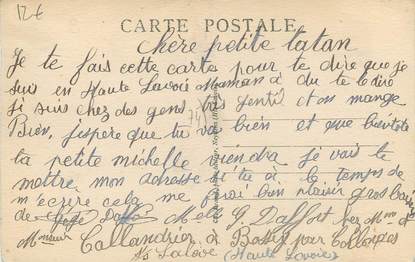 12€
CARTE POSTALE
chère petite tatan
Je te fais cette carte pour te dire que je
suis en Haute Savoie Maman a du te le dire
je suis chez des gens très gentil et on mange
Bien, j'espère que tu va bien et que bientôt
ta petite michelle viendra je vais te
mettre mon adresse si tu a le temps de
m'écrire cela me ferai bon plaisir gros baiser
de G. Daffort chez Mr et
Callandrier à Bossy par Collonges
Haute Savoie